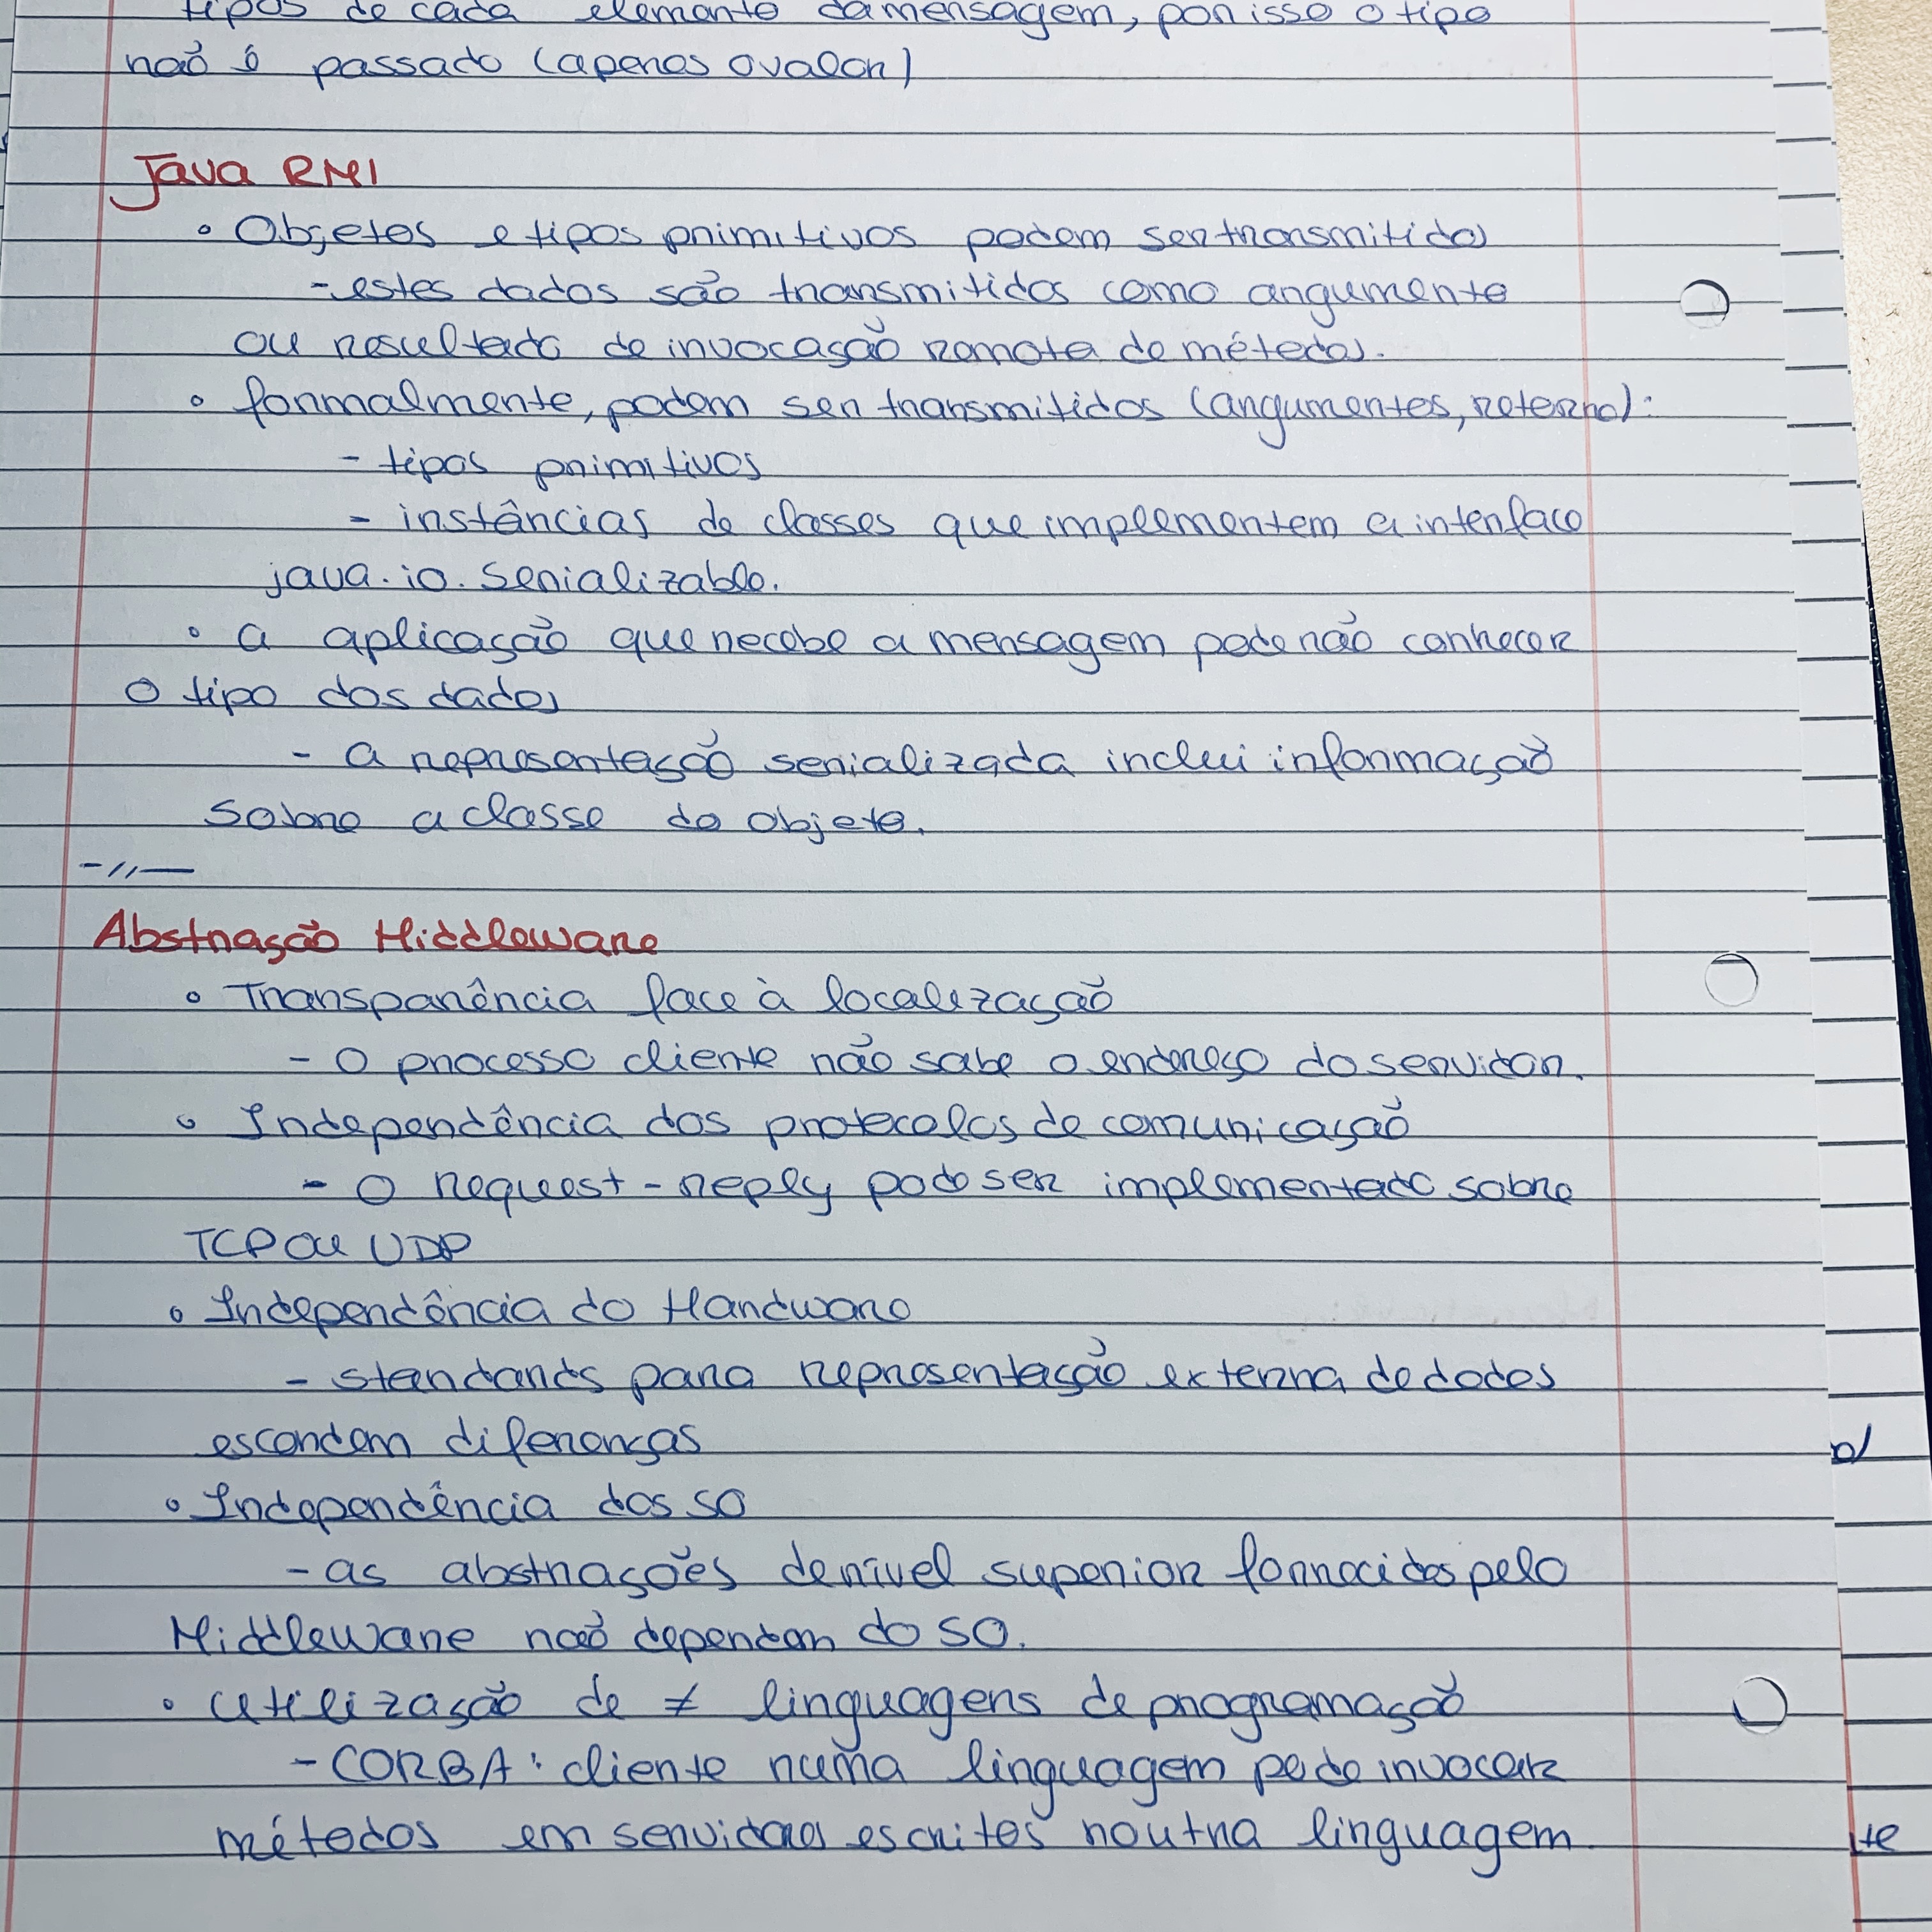 tipos de cada elemento da mensagem, por isso o tipo
não é passado (apenas o valor)
Java RMI
• Objetos e tipos primitivos podem ser transmitidos
- estes dados são transmitidos como argumento
ou resultado de invocação remota de métodos.
• formalmente, podem ser transmitidos (argumentos, retorno):
- tipos primitivos
- instâncias de classes que implementem a interface
java.io.Serializable.
• a aplicação que recebe a mensagem pode não conhecer
o tipo dos dados
- a representação serializada inclui informação
sobre a classe do objeto.
-//-
Abstração Middleware
• Transparência face à localização
- o processo cliente não sabe o endereço do servidor.
• Independência dos protocolos de comunicação
- o request-reply pode ser implementado sobre
TCP ou UDP
• Independência do Hardware
- standards para representação externa de dados
escondem diferenças
• Independência dos SO
- as abstrações de nível superior fornecidas pelo
Middleware não dependem do SO.
• Utilização de ≠ linguagens de programação
- CORBA: cliente numa linguagem pode invocar
métodos em servidores escritos noutra linguagem